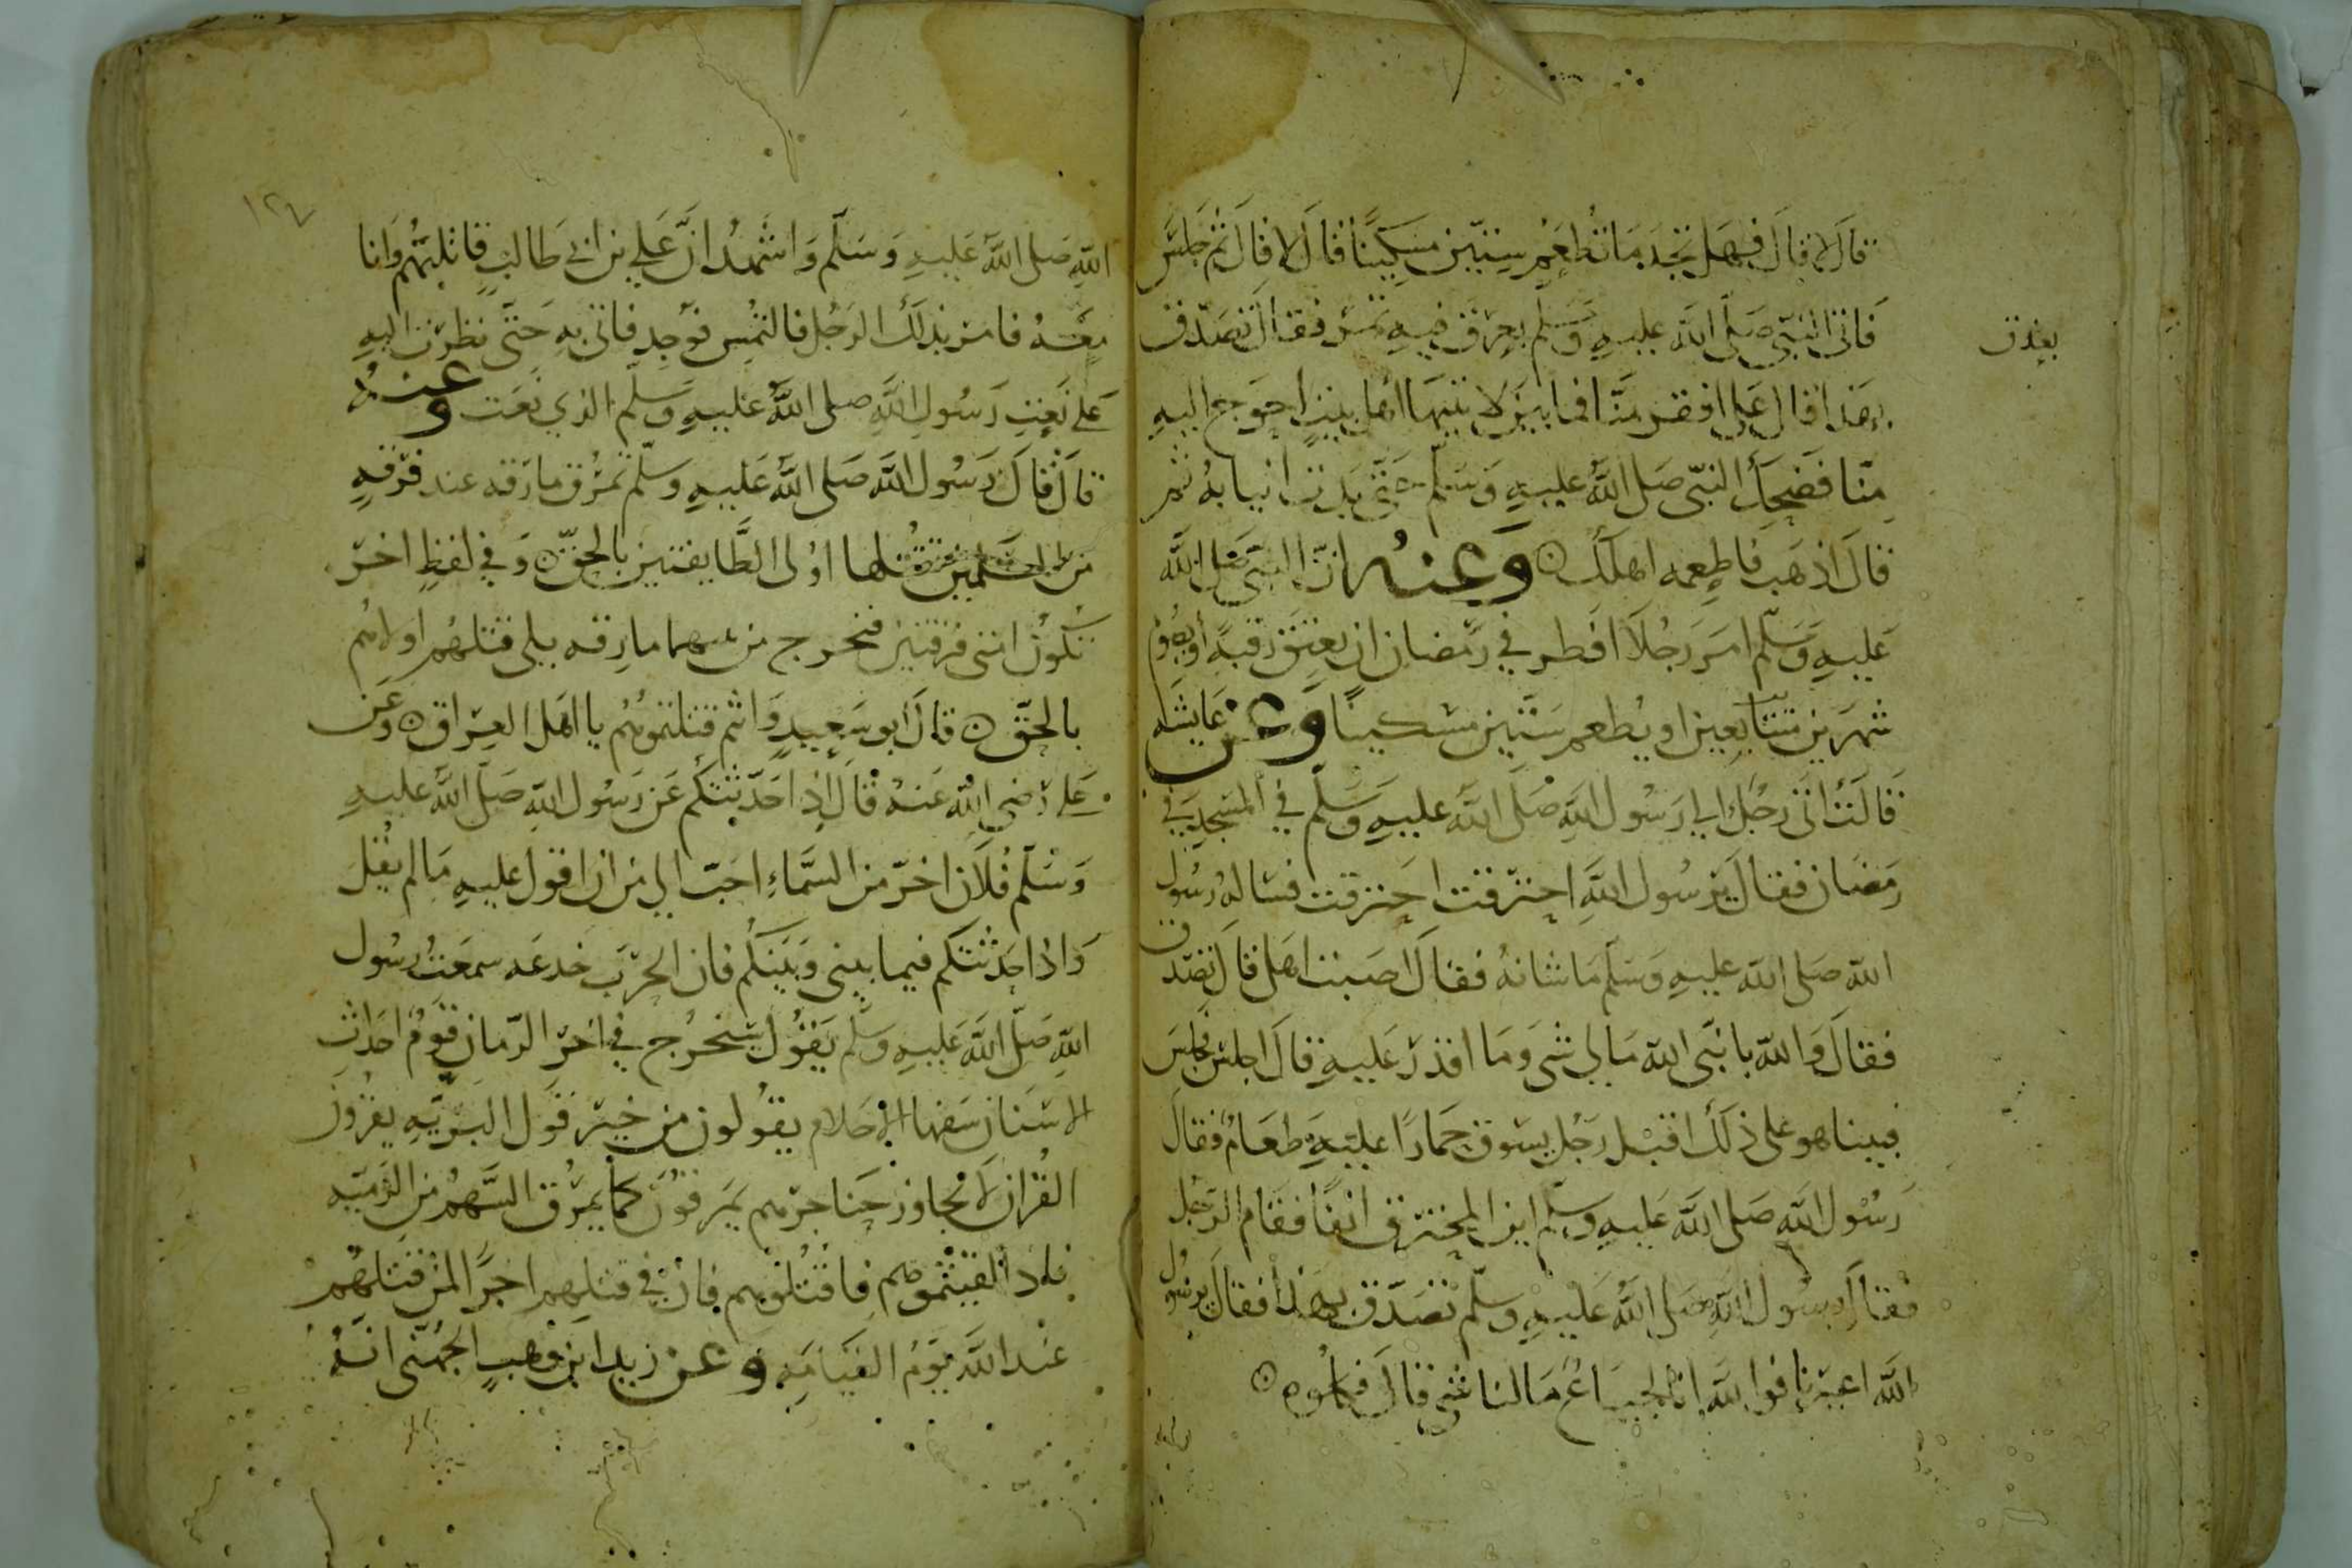 قال لا قال فهل تجد ما تطعم ستين مسكينا قال لا قال ثم جلس
فاتى النبي صلى الله عليه وسلم بعرق فيه تمر فقال تصدق
بعذق
بهذا قال على افقر منا فما بين لابتيها اهل بيت احوج اليه
منا فضحك النبي صلى الله عليه وسلم حتى بدت انيابه ثم
قال اذهب فاطعمه اهلك ٥ وعنه ان النبي صلى الله
عليه وسلم امر رجلا افطر في رمضان ان يعتق رقبة او يصوم
شهرين متتابعين او يطعم ستين مسكينا وعن عايشه
قالت اتى رجل الى رسول الله صلى الله عليه وسلم في المسجد في
رمضان فقال يرسول الله احترقت احترقت فساله رسول
الله صلى الله عليه وسلم ما شانه فقال اصبت اهلي قال تصدق
فقال والله يا نبي الله مالي شى وما اقدر عليه قال اجلس فجلس
فبينا هو على ذلك اقبل رجل يسوق حمارا عليه طعام فقال
رسول الله صلى الله عليه وسلم اين المحترق انفا فقام الرجل
فقال رسول الله صلى الله عليه وسلم تصدق بهذا فقال يرسول
الله اغيرنا فوالله انا لجياع ما لنا شى قال فكلوه ٥
١٢٧
الله صلى الله عليه وسلم واشهد ان علي بن ابي طالب قاتلهم وانا
معه فامر بذلك الرجل فالتمس فوجد فاتى به حتى نظرت اليه
على نعت رسول الله صلى الله عليه وسلم الذي نعت وعنه
قال قال رسول الله صلى الله عليه وسلم تمرق مارقه عند فرقه
من المسلمين تقتلها اولى الطايفتين بالحق ٥ وفي لفظ اخر
تكون امتي فرقتين فتخرج من بينهما مارقه يلي قتلهم اولاهم
بالحق ٥ قال ابو سعيد وانتم قتلتموهم يا اهل العراق ٥ وعن
علي رضي الله عنه قال اذا حدثتكم عن رسول الله صلى الله عليه
وسلم فلان اخر من السماء احب الي من ان اقول عليه مالم يقل
واذا حدثتكم فيما بيني وبينكم فان الحرب خدعه سمعت رسول
الله صلى الله عليه وسلم يقول سيخرج في اخر الزمان قوم احداث
الاسنان سفها الاحلام يقولون من خير قول البريه يقرون
القران لا يجاوز حناجرهم يمرقون كما يمرق السهم من الرميه
فاذا لقيتموهم فاقتلوهم فان في قتلهم اجرا لمن قتلهم
عند الله يوم القيامه وعن زيد ابن وهب الجهني انه